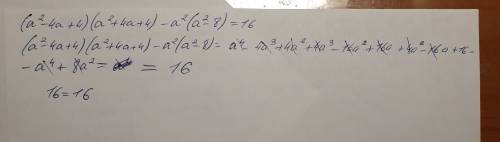 (a²-4a+4)(a²+4a+4)-a²(a²-8)=16
(a²-4a+4)(a²+4a+4)-a²(a²-8)= a⁴ 4a³+4a²+4a³-16a²+16a+4a²-16a+16-
-a⁴+8a²= = 16
16=16